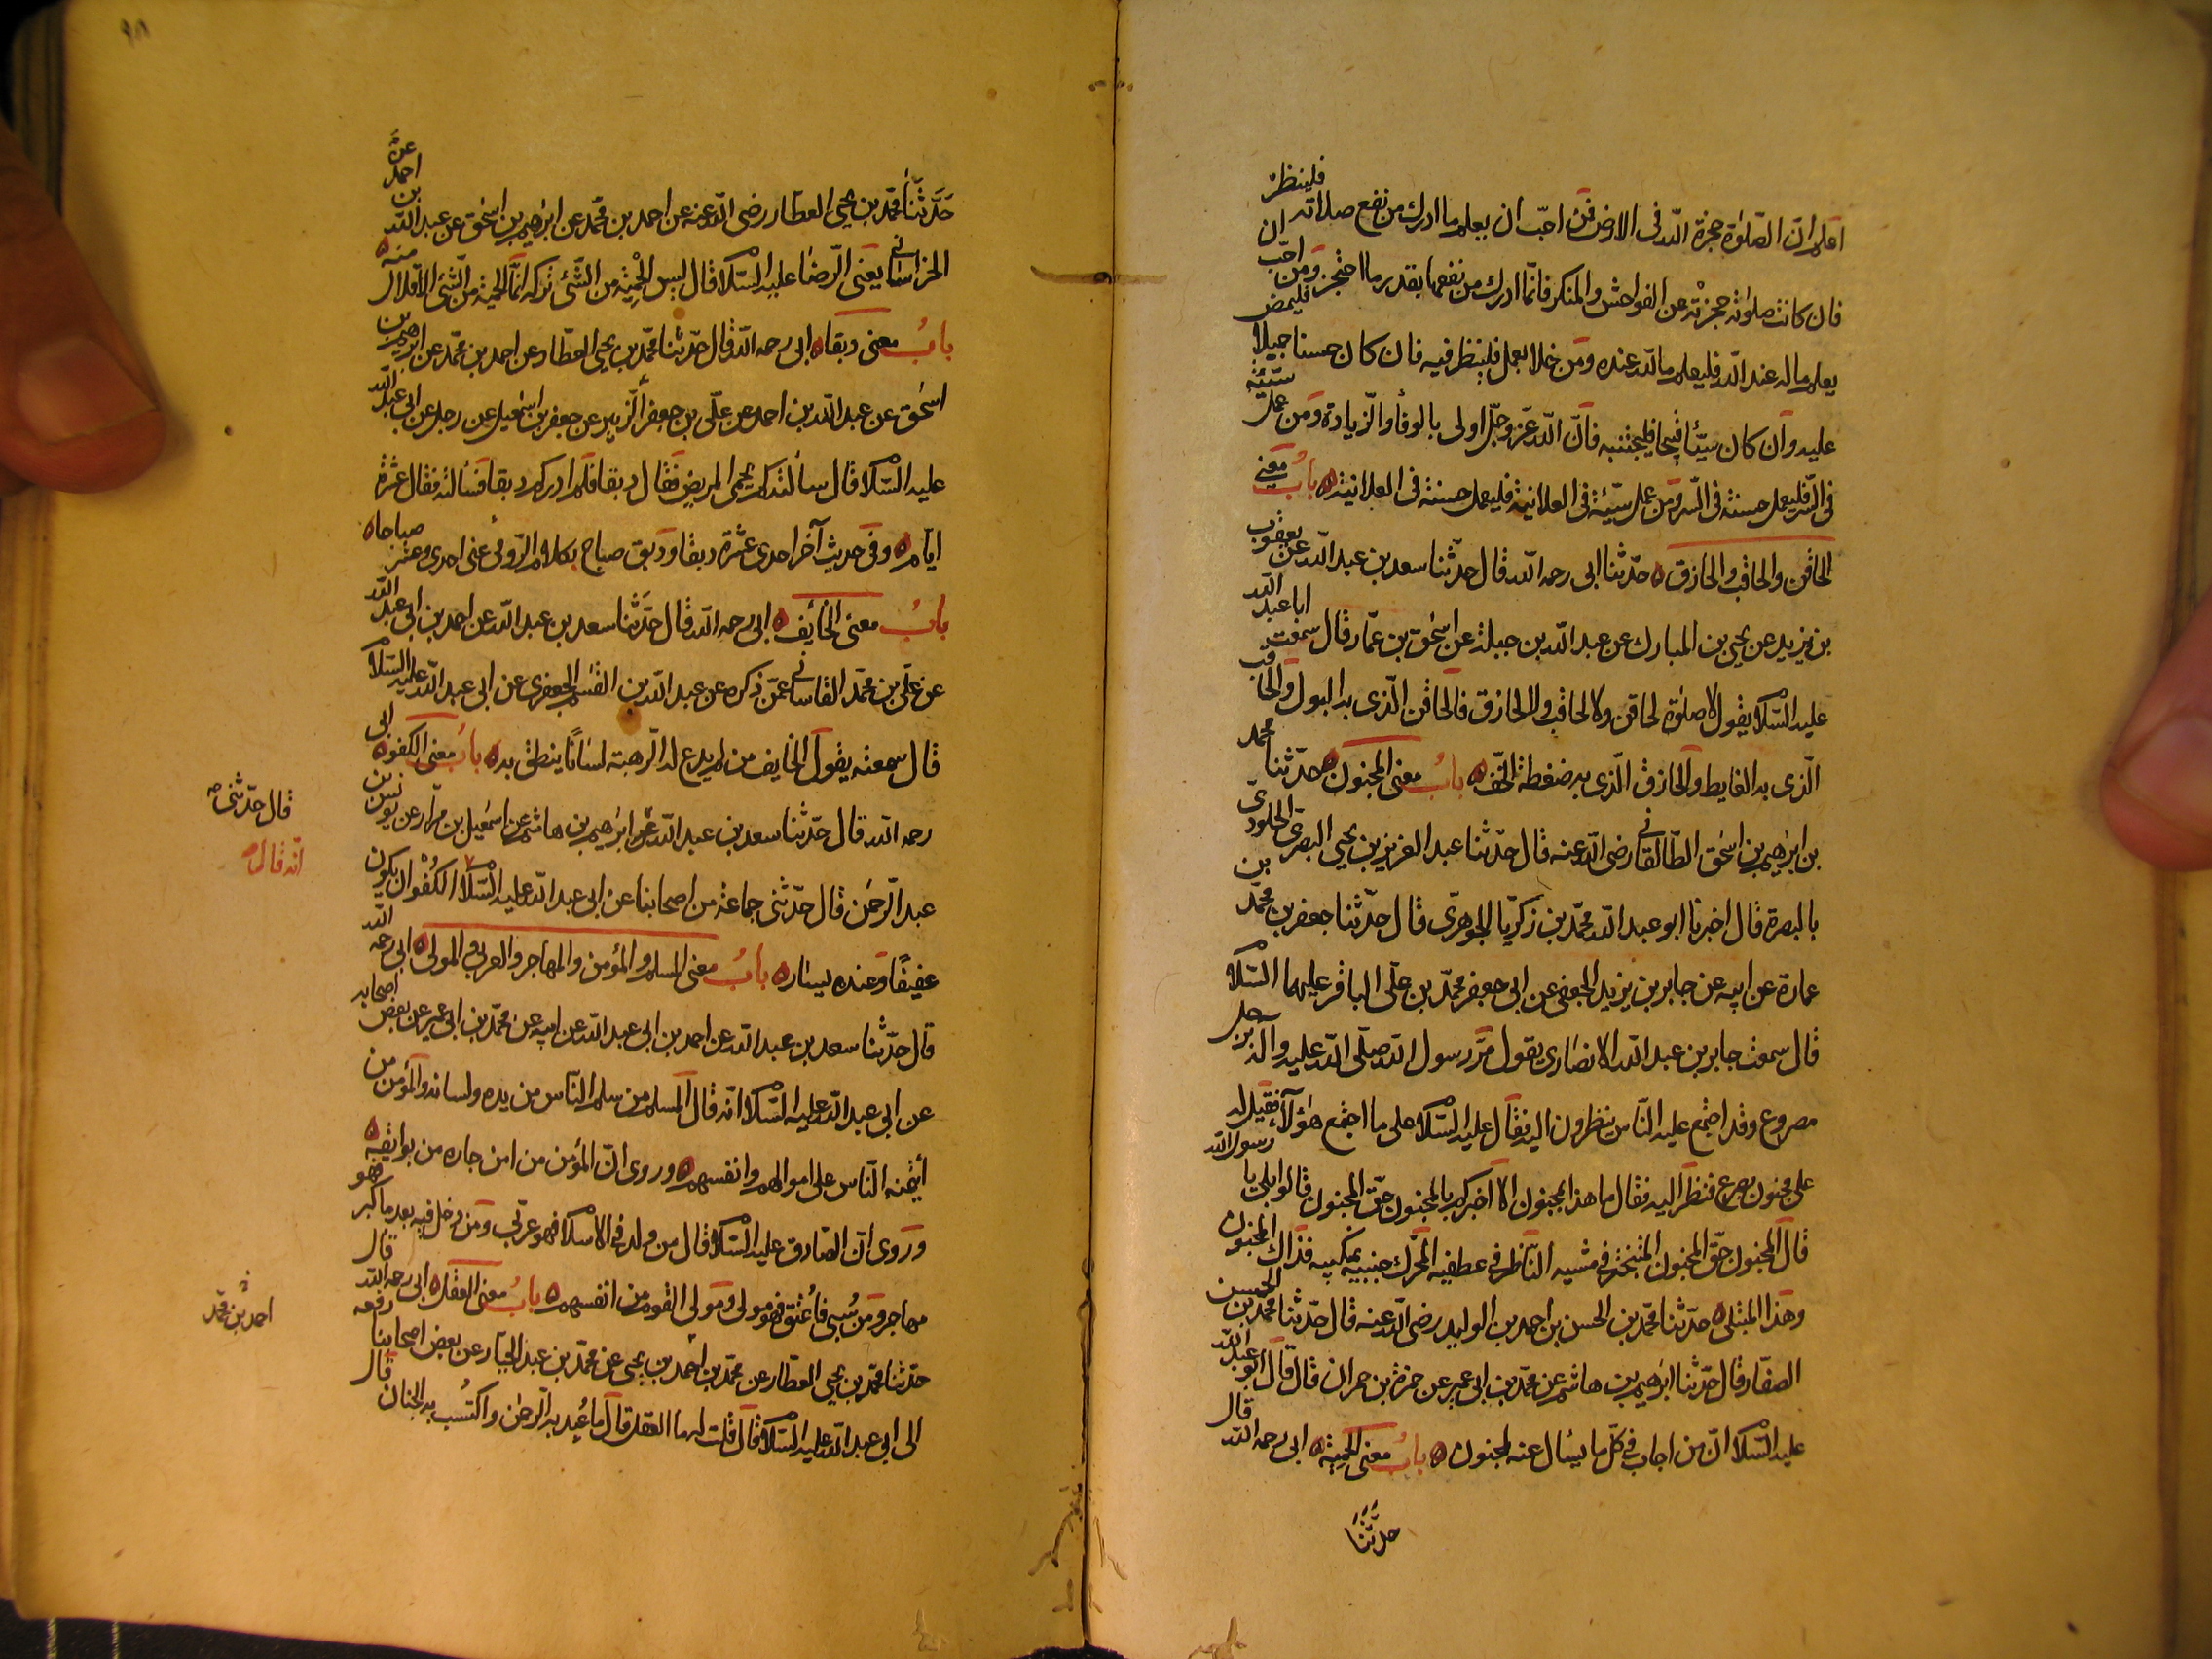 اعلم ان الصلوة حجزة الله فى الارض فمن احب ان يعلم ما ادرك من نفع صلاته فلينظر
فان كانت صلوته حجزته عن الفواحش والمنكر فانما ادرك من نفعها بقدر ما احتجز ومن احب ان
يعلم ماله عند الله فليعلم ما لله عنده ومن خلا بعمل فلينظر فيه فان كان حسنا جميلا فليمض
عليه وان كان سيئا قبيحا فليجتنبه فان الله عز وجل اولى بالوفا والزيادة ومن عمل سيئة
فى السر فليعمل حسنة فى السر ومن عمل سيئة فى العلانية فليعمل حسنة فى العلانية ه باب معنى
الحاقن والحاقب والحازق ه حدثنا ابى رحمه الله قال حدثنا سعد بن عبد الله عن يعقوب
بن يزيد عن يحيى بن المبارك عن عبد الله بن جبلة عن اسحق بن عمار قال سمعت ابا عبد الله
عليه السلام يقول لا صلوة لحاقن ولا لحاقب ولا لحازق فالحاقن الذى به البول والحاقب
الذى به الغايط والحازق الذى به ضغطة الخف ه باب معنى المجنون ه حدثنا محمد
بن ابرهيم بن اسحق الطالقانى رضى الله عنه قال حدثنا عبد العزيز بن يحيى البصرى الجلودى
بالبصرة قال اخبرنا ابو عبد الله محمد بن زكريا الجوهرى قال حدثنا جعفر بن محمد بن
عمارة عن ابيه عن جابر بن يزيد الجعفى عن ابى جعفر محمد بن على الباقر عليهما السلام
قال سمعت جابر بن عبد الله الانصارى يقول مر رسول الله صلى الله عليه واله برجل
مصروع وقد اجتمع عليه الناس ينظرون اليه فقال عليه السلام على ما اجتمع هؤلآء فقيل له
على مجنون يصرع فنظر اليه فقال ما هذا بمجنون الا اخبركم بالمجنون حق المجنون قالوا بلى يا رسول الله
قال المجنون حق المجنون المتبختر فى مشيه الناظر فى عطفيه المحرك جنبيه بمنكبيه فذاك المجنون
وهذا المبتلى ه حدثنا محمد بن الحسن بن احمد بن الوليد رضى الله عنه قال حدثنا محمد بن الحسن
الصفار قال حدثنا ابرهيم بن هاشم عن محمد بن ابى عمير عن حمزة بن حمران قال قال ابو عبد الله
عليه السلام ان من اجاب فى كل ما يسأل عنه لمجنون ه باب معنى الحمية ه ابى رحمه الله قال
حدثنا
٩٨
حدثنا محمد بن يحيى العطار رضى الله عنه عن احمد بن محمد عن ابرهيم بن اسحق عن عبد الله بن احمد عن
الخراسانى يعنى الرضا عليه السلام قال ليس الحمية من الشئ تركه انما الحمية من الشئ الاقلال منه ه
باب معنى دبقا ه ابى رحمه الله قال حدثنا محمد بن يحيى العطار عن احمد بن محمد عن ابرهيم بن
اسحق عن عبد الله بن احمد عن على بن جعفر الزبير عن جعفر بن اسمعيل عن رجل عن ابى عبد الله
عليه السلام قال سألته كم يحمى المريض فقال دبقا فلم ادر كم دبقا فسألته فقال عشرة
ايام ه وفى حديث آخر احدى عشرة دبقا ودبق صباح بكلام الرومى عنى احدى وعشر صباحا ه
باب معنى الخائف ه ابى رحمه الله قال حدثنا سعد بن عبد الله عن احمد بن ابى عبد الله
عن على بن محمد القاسانى عمن ذكره عن عبد الله بن القسم الجعفرى عن ابى عبد الله عليه السلام
قال سمعته يقول الخايف من لم يدع له الرهبة لسانا ينطق به ه باب معنى الكفوه ابى
رحمه الله قال حدثنا سعد بن عبد الله عن ابرهيم بن هاشم عن اسمعيل بن مرار عن يونس بن
قال حدثنى
عبد الرحمن قال حدثنى جماعة من اصحابنا عن ابى عبد الله عليه السلام الكفو ان يكون
انه قال
عفيفا وعنده يسار ه باب معنى المسلم والمؤمن والمهاجر والعربى والمولى ه ابى رحمه الله
قال حدثنا سعد بن عبد الله عن احمد بن ابى عبد الله عن ابيه عن محمد بن ابى عمير عن بعض اصحابه
عن ابى عبد الله عليه السلام انه قال المسلم من سلم الناس من يده ولسانه والمؤمن من
أيتمنه الناس على اموالهم وانفسهم ه وروى ان المؤمن من امن جاره من بوائقه ه
وروى ان الصادق عليه السلام قال من ولد فى الاسلام فهو عربى ومن دخل فيه بعد ما كبر فهو
مهاجر ومن سبى فاعتق فهو مولى ومولى القوم من انفسهم ه باب معنى العقل ه ابى رحمه الله قال
حدثنا محمد بن يحيى العطار عن محمد بن احمد بن يحيى عن محمد بن عبد الجبار عن بعض اصحابنا رفعه
احمد بن محمد
الى ابى عبد الله عليه السلام قال قلت له ما العقل قال ما عبد به الرحمن واكتسب به الجنان قال